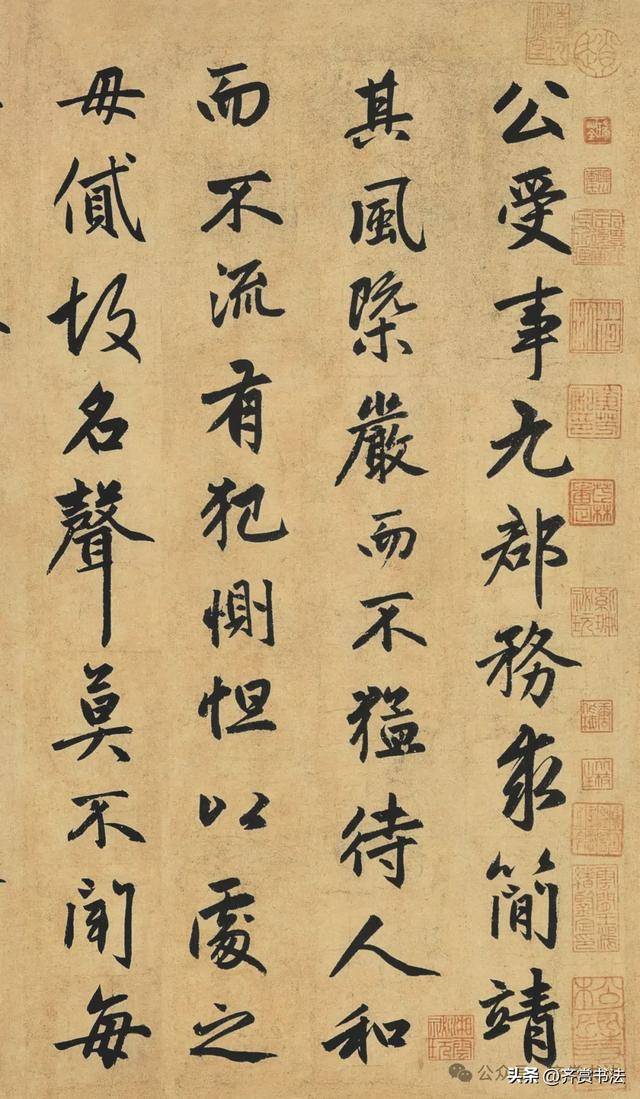 公受事九郡務求簡靖
其風槩嚴而不猛待人和
而不流有犯惻怛以處之
毋貸故名聲莫不聞每
公众
头条 @齐赏书法